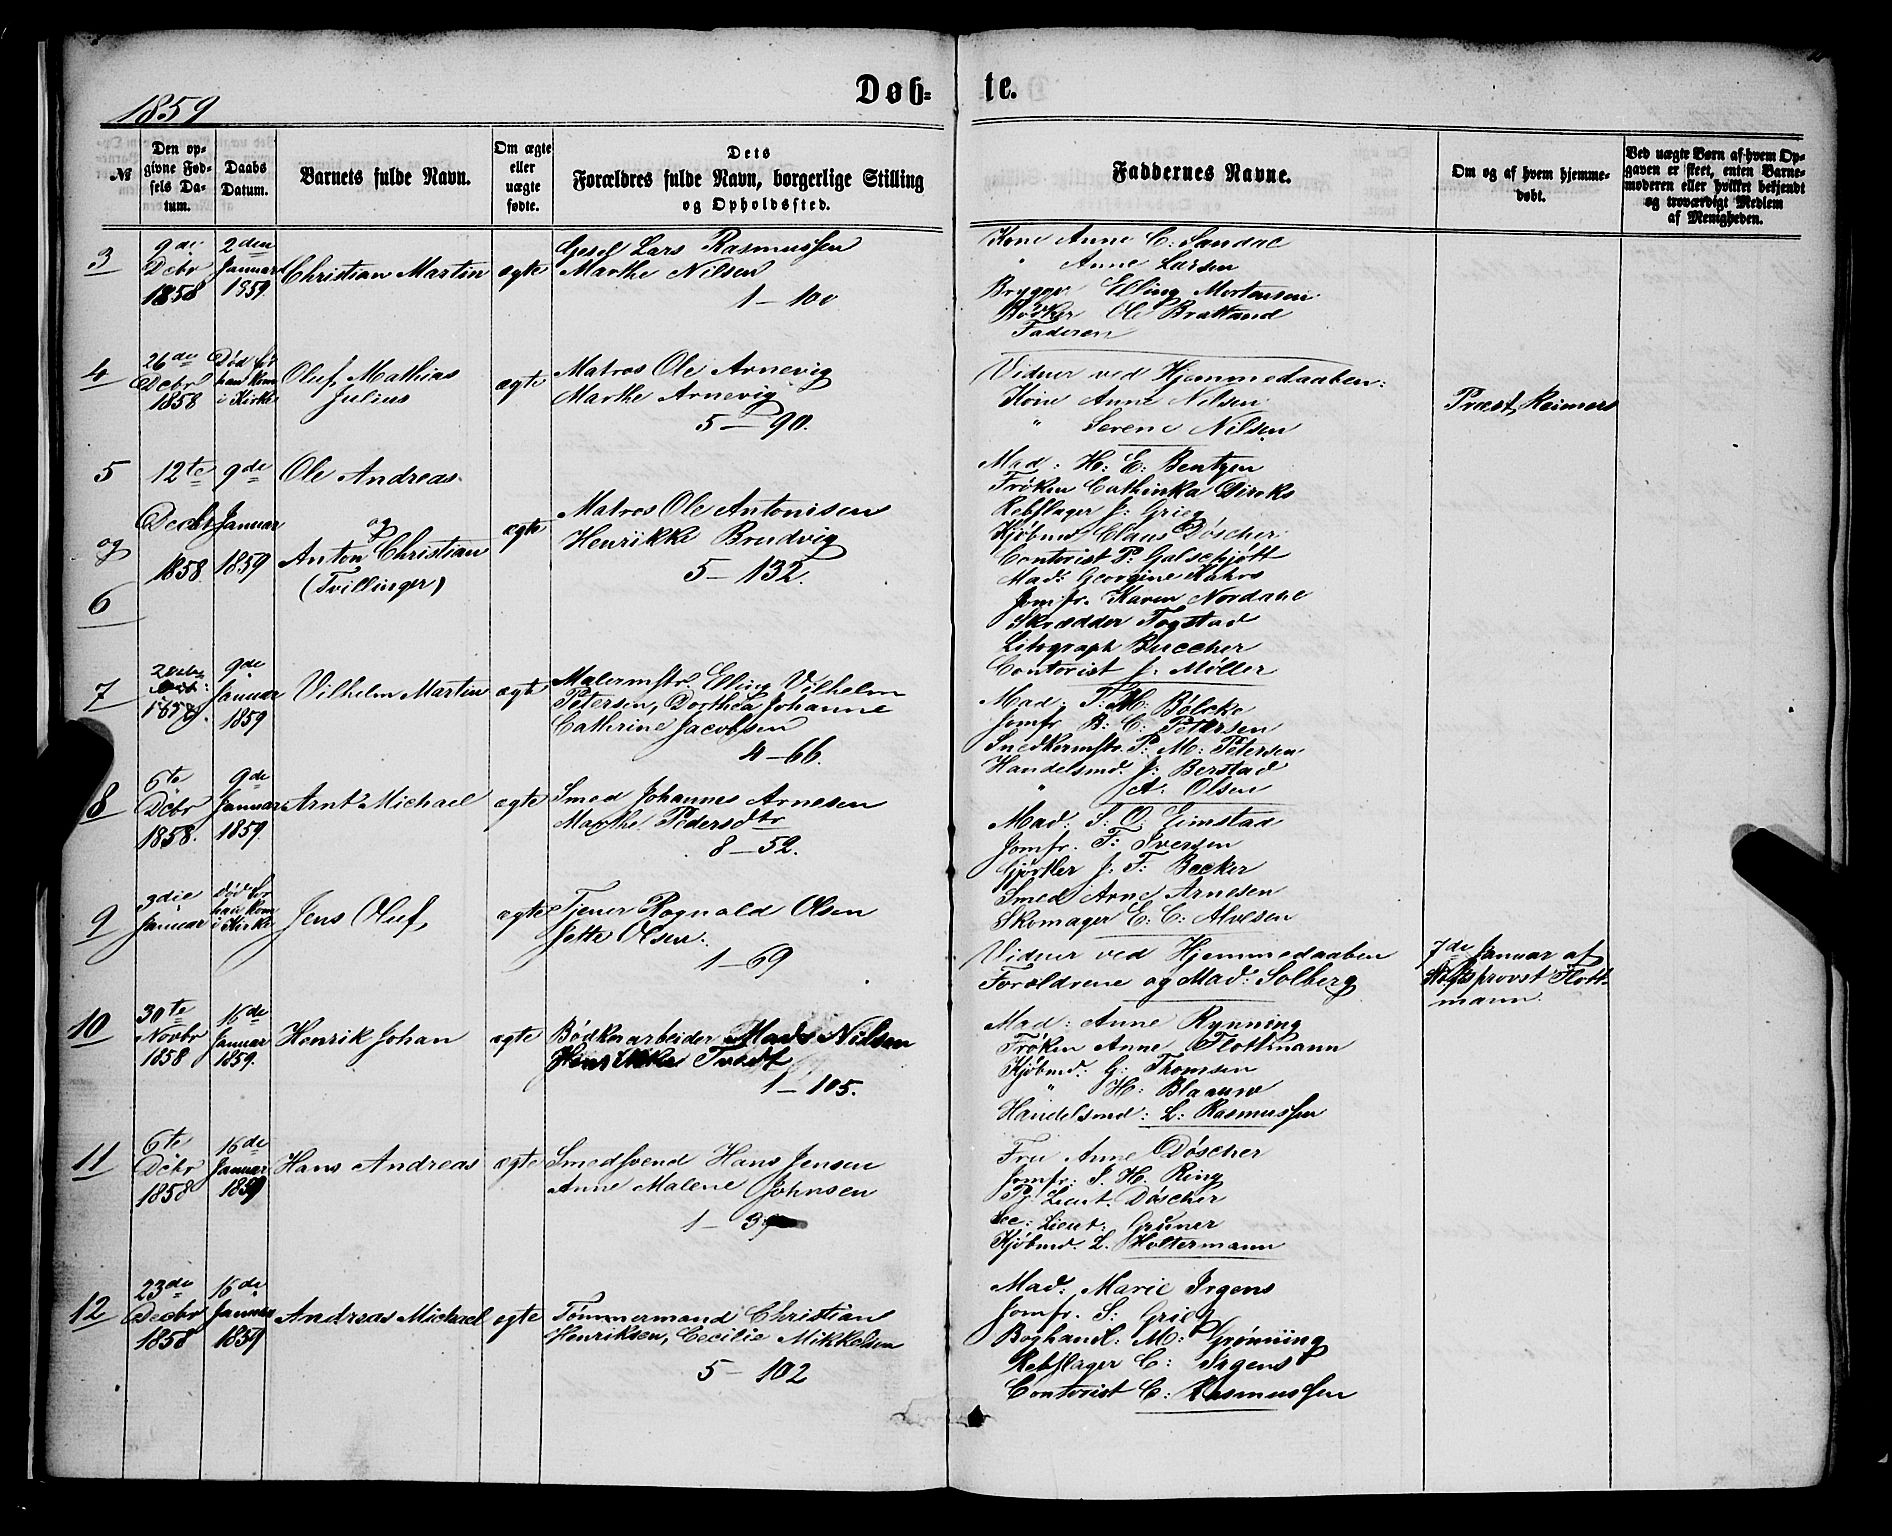 1859
Døb=
te.
№
Den op=
givne Fød=
sels Da=
tum.
Daabs
Datum.
Barnets fulde Navn.
Om ægte
eller
uægte
fødte.
Dets
Forældres fulde Navn, borgerlige Stilling
og Opholdssted.
Faddernes Navne.
Om og af hvem hjemme=
døbt.
Ved uægte Børn af hvem Op=
gaven er skeet, enten Barne=
moderen eller hvilket bekjendt
og troværdigt Medlem
af Menigheden.
3
9de
Dcbr
1858
2den
Januar
1859
Christian Martin
ægte
Gesel Lars Rasmussen
Marthe Nilsen
1 – 100
Kone Anne C: Sandal
" Anne Larsen
Brygger Elling Mortensen
Bødker Ole Brattland
Faderen
4
26de
Dcbr
1858
Død før
han kom
i Kirke
Oluf Mathias
Julius
ægte
Matros Ole Arnevig
Marthe Arnevig
5 – 90.
Vidner ved Hjemmedaaben:
Kone Anne Nilsen
" Serene Nilsen
Præst Reimers
5
og
6
12te
Decbr
1858
9de
Januar
1859
Ole Andreas
og
Anton Christian
(Tvillinger)
ægte
Matros Ole Antonisen
Henrikke Brudvig
5 – 132.
Mad: H: E: Bentzen
Frøken Cathinka Dircks
Rebslager J: Grieg
Kjøbmd Claus Døscher
Contorist P: Galschjøtt
Mad: Georgine Kahrs
Jomfr. Karen Nordahl
Skrædder Fogstad
Litograph Buccher
Contorist J: Møller
7
1858
9de
Januar
1859
Vilhelm Martin
ægte
Malermstr. Elling Vilhelm
Petersen, Dorthea Johanne
Cathrine Jacobsen
4 – 66.
Mad: T: M: Bølcke
Jomfr B: C: Petersen
Snedkermstr. P: M: Petersen
Handelsmd. J: Berstad
" A: Olsen
8
6te
Dcbr
1858.
9de
Januar
1859.
Arnt Michael
ægte
Smed Johannes Arnesen
Marthe Pedersdtr
8 – 52.
Mad: S: O: Eimstad
Jomfr. F: Iversen
Gjørtler J. F: Becker
Smed Arne Arnesen
Skomager E: C: Alvesen
9
3die
Januar
død før
han kom
i Kirke
Jens Oluf
ægte
Tjener Rognald Olsen
Jette Olsen.
1 – 69
Vidner ved Hjemmedaaben
Forældrene og Mad: Solberg
7de Januar af
provst Flott=
mann.
10
30te
Novbr
1858
16de
Januar
1859.
Henrik Johan
ægte
Bødkerarbeider Mads Nilsen
Henrikke Tvedt
1 – 105.
Mad: Anne Rynning
Frøken Anne Flottmann
Kjøbmd: G: Thomsen
" H: Blaauw
Handelsmd: L: Rasmussen
11
6te
Dcbr
1858
16de
Januar
1859
Hans Andreas
ægte
Smedsvend Hans Jensen
Anne Malene Johnsen
1 – 39
Fru Anne Døscher
Jomfr: S. H. Ring
Pr: Lieut. Døscher
Sec: Lieut: Grüner
Kjøbmd. L. Holtermann
12
23de
Decbr
1858
16de
Januar
1859
Andreas Michael
ægte
Tømmermand Christian
Henriksen, Cecilie Mikkelsen
5 – 102
Mad: Marie Irgens
Jomfr. S: Grieg
Boghandl: M: Grønning
Rebslager C: Irgens
Contorist C: Rasmussen